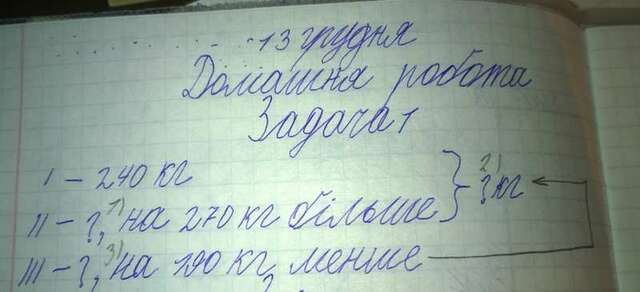 13 грудня
Домашня робота
Задача 1
I – 240 кг
II – ?, 1) на 270 кг більше } 2) ? кг
III – ?, 3) на 190 кг менше